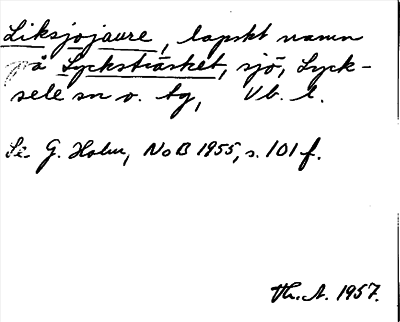 Liksjojaure, lapskt namn
på Lycksträsket, sjö, Lyck-
sele sn o. tg, Vb. l.
Se G. Holm, NoB 1955, s. 101 f.
Th. A. 1957.